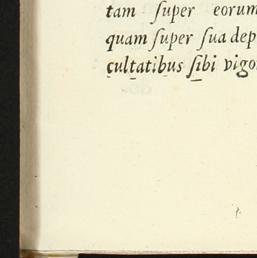 tam ſuper eorum
quam ſuper ſua dep
cultatibus ſibi vigo